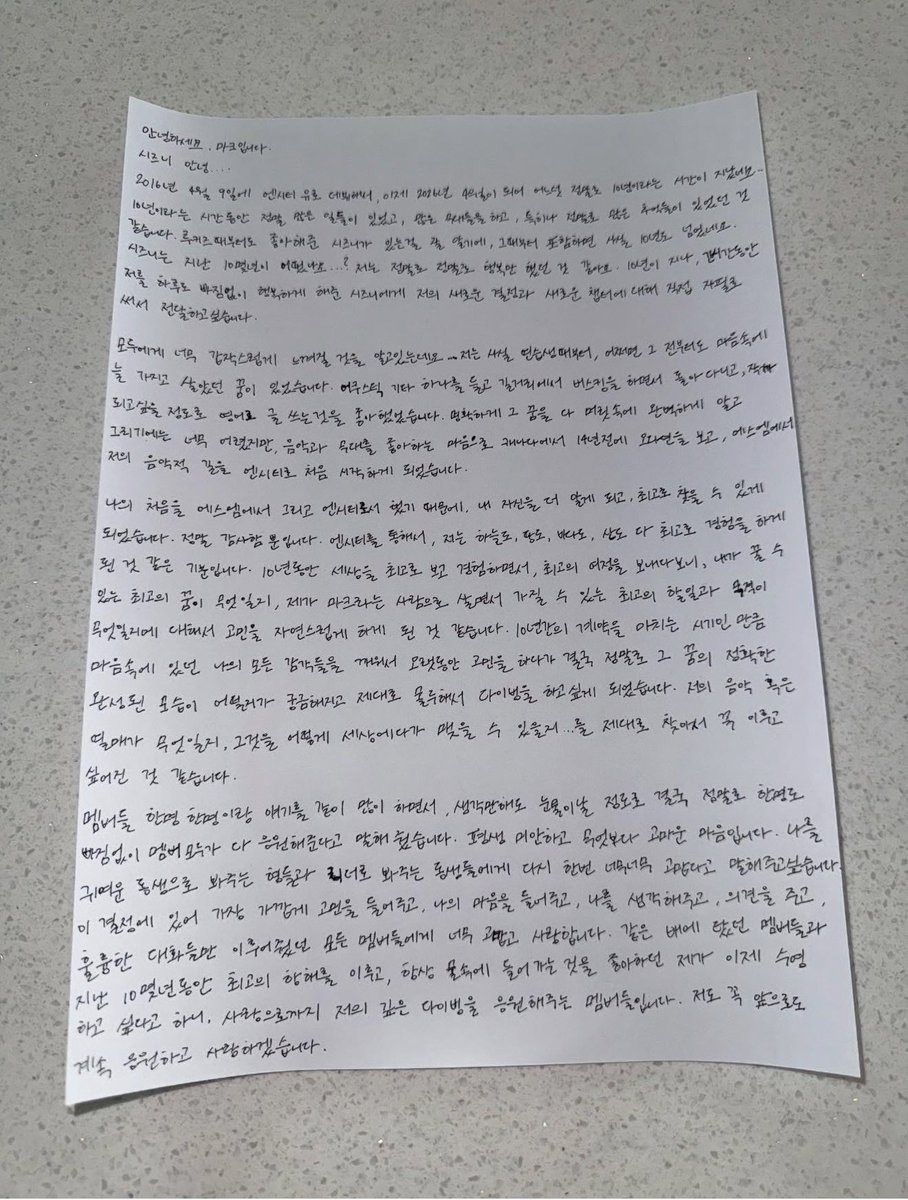 안녕하세요. 마크입니다.
시즈니 안녕....
2016년 4월 9일에 엔시티 유로 데뷔해서, 이제 2026년 4월이 되어 어느덧 정말로 10년이라는 시간이 지났네요..
10년이라는 시간동안 정말 많은 일들이 있었고, 많은 무대들을 하고, 특히나 정말로 많은 추억들이 있었던 것
같습니다. 루키즈때부터도 좋아해준 시즈니가 있는걸 잘 알기에, 그때부터 포함하면 사실 10년도 넘었네요.
시즈니는 지난 10몇년이 어땠나요...? 저는 정말로 정말로 행복만 했던 것 같아요. 10년이 지나, 그동안
저를 하루도 빠짐없이 행복하게 해준 시즈니에게 저의 새로운 결정과 새로운 챕터에 대해 직접 자필로
써서 전달하고싶습니다.
모두에게 너무 갑작스럽게 느껴질 것을 알고있는데요... 저는 사실 연습생때부터, 어쩌면 그 전부터도 마음속에
늘 가지고 살았던 꿈이 있었습니다. 어쿠스틱 기타 하나를 들고 길거리에서 버스킹을 하면서 돌아다니고, 작가
되고싶을 정도로 영어로 글 쓰는것을 좋아했었습니다. 명확하게 그 꿈을 다 머릿속에 완벽하게 알고
그리기에는 너무 어렸지만, 음악과 무대를 좋아하는 마음으로 캐나다에서 14년전에 오디션을 보고, 에스엠에서
저의 음악적 길을 엔시티로 처음 시작하게 되었습니다.
나의 처음을 에스엠에서 그리고 엔시티로서 했기 때문에, 내 자신을 더 알게 되고, 최고로 찾을 수 있게
되었습니다. 정말 감사할 뿐입니다. 엔시티를 통해서, 저는 하늘도, 땅도, 바다도, 산도 다 최고로 경험을 하게
된 것 같은 기분입니다. 10년동안 세상을 최고로 보고 경험하면서, 최고의 여정을 보내다보니, 내가 꿀 수
있는 최고의 꿈이 무엇일지, 제가 마크라는 사람으로 살면서 가질 수 있는 최고의 할일과 목적이
무엇일지에 대해서 고민을 자연스럽게 하게 된 것 같습니다. 10년간의 계약을 마치는 시기인 만큼
마음속에 있던 나의 모든 감각들을 깨워서 오랫동안 고민을 하다가 결국 정말로 그 꿈의 정확한
완성된 모습이 어떨지가 궁금해지고 제대로 몰두해서 다이빙을 하고싶게 되었습니다. 저의 음악 혹은
열매가 무엇일지, 그것을 어떻게 세상에다가 맺을 수 있을지...를 제대로 찾아서 꼭 이루고
싶어진 것 같습니다.
멤버들 한명 한명이랑 얘기를 같이 많이 하면서, 생각만해도 눈물이날 정도로 결국 정말로 한명도
빠짐없이 멤버 모두가 다 응원해준다고 말해 줬습니다. 평생 미안하고 무엇보다 고마운 마음입니다. 나를
귀여운 동생으로 봐주는 형들과 리더로 봐주는 동생들에게 다시 한번 너무너무 고맙다고 말해주고싶습니다.
이 결정에 있어 가장 가깝게 고민을 들어주고, 나의 마음을 들어주고, 나를 생각해주고, 의견을 주고,
훌륭한 대화들만 이루어줬던 모든 멤버들에게 너무 고맙고 사랑합니다. 같은 배에 탔던 멤버들과
지난 10몇년동안 최고의 항해를 이루고, 항상 물속에 들어가는 것을 좋아하던 제가 이제 수영
하고 싶다고 하니, 사랑으로까지 저의 깊은 다이빙을 응원해주는 멤버들입니다. 저도 꼭 앞으로도
계속 응원하고 사랑하겠습니다.